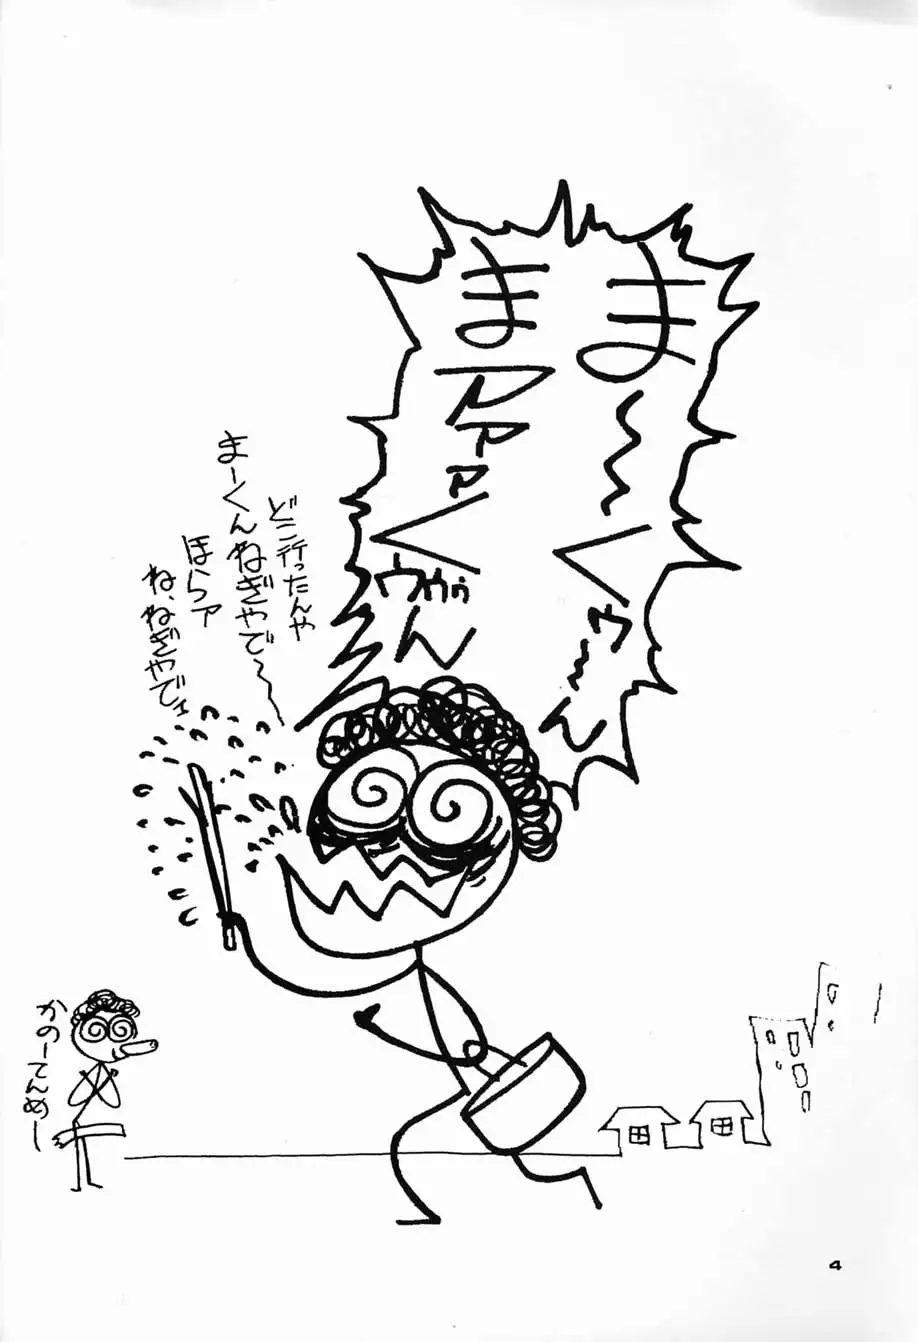 ま～くゥ～ん
まアァァくゥゥゥん
どこ行ったんや
まーくんねぎやで～
ほらァ
ね、ねぎやでェ
かのーてんめー
4